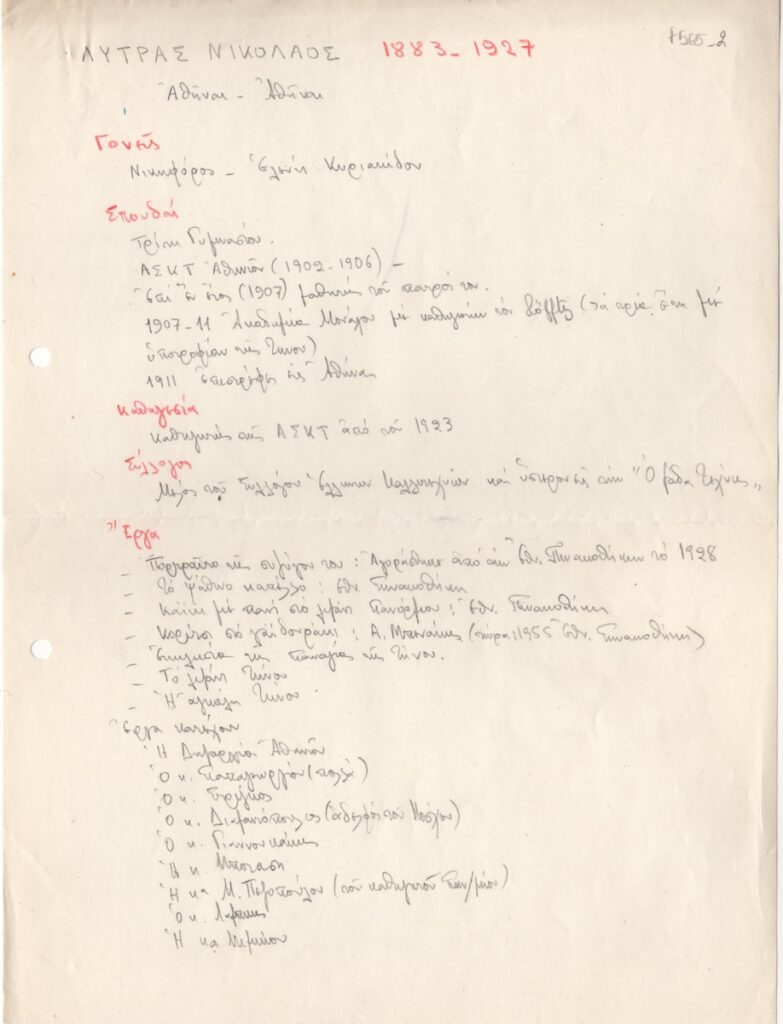 ΛΥΤΡΑΣ ΝΙΚΟΛΑΟΣ 1883-1927
Ἀθῆναι - Ἀθῆναι
Γονεῖς
Νικηφόρος - Ἑλένη Κυριακίδου
Σπουδαί
Τρίτη Γυμνασίου.
ΑΣΚΤ Ἀθηνῶν (1902-1906) -
Ἐπί ἓν ἔτος (1907) μαθητής τοῦ πατρός του.
1907-11 Ἀκαδημία Μονάχου μέ καθηγητήν τόν Löfftz (τά τρία ἔτη μέ
ὑποτροφίαν τῆς Τήνου)
1911 ἐπιστρέφει εἰς Ἀθήνας
Καθηγεσία
Καθηγητής τῆς ΑΣΚΤ ἀπό τοῦ 1923
Σύλλογος
Μέλος τοῦ Συλλόγου Ἑλλήνων Καλλιτεχνῶν καί ὕστερον εἰς τήν "Ὁμάδα Τέχνης"
Ἔργα
Πορτραῖτο τῆς συζύγου του: Ἀγοράσθηκε ἀπό τήν Ἐθν. Πινακοθήκην τό 1928
- Τό ψάθινο καπέλλο: Ἐθν. Πινακοθήκη
- Καΐκι μέ πανί στό λιμάνι Πανόρμου: Ἐθν. Πινακοθήκη
- Κορίτσι στό γαϊδουράκι: Α. Μπενάκης (τώρα, 1955 Ἐθν. Πινακοθήκη)
- Ἐκκλησία τῆς Παναγίας τῆς Τήνου.
- Τό λιμάνι Τήνου
- Ἡ ἀγκάλη Τήνου
Ἔργα κατέχουν
Ἡ Δημαρχία Ἀθηνῶν
Ὁ κ. Παπαγεωργίου (πολλά)
Ὁ κ.
Ὁ κ. Διαμαντόπουλος (ἀδελφός τοῦ
Ὁ κ. Γιαννουκάκης
Ἡ κ. Μπόταση
Ἡ κα Μ. Πετροπούλου (τοῦ καθηγητοῦ Παν/μίου)
Ὁ κ.
Ἡ κα